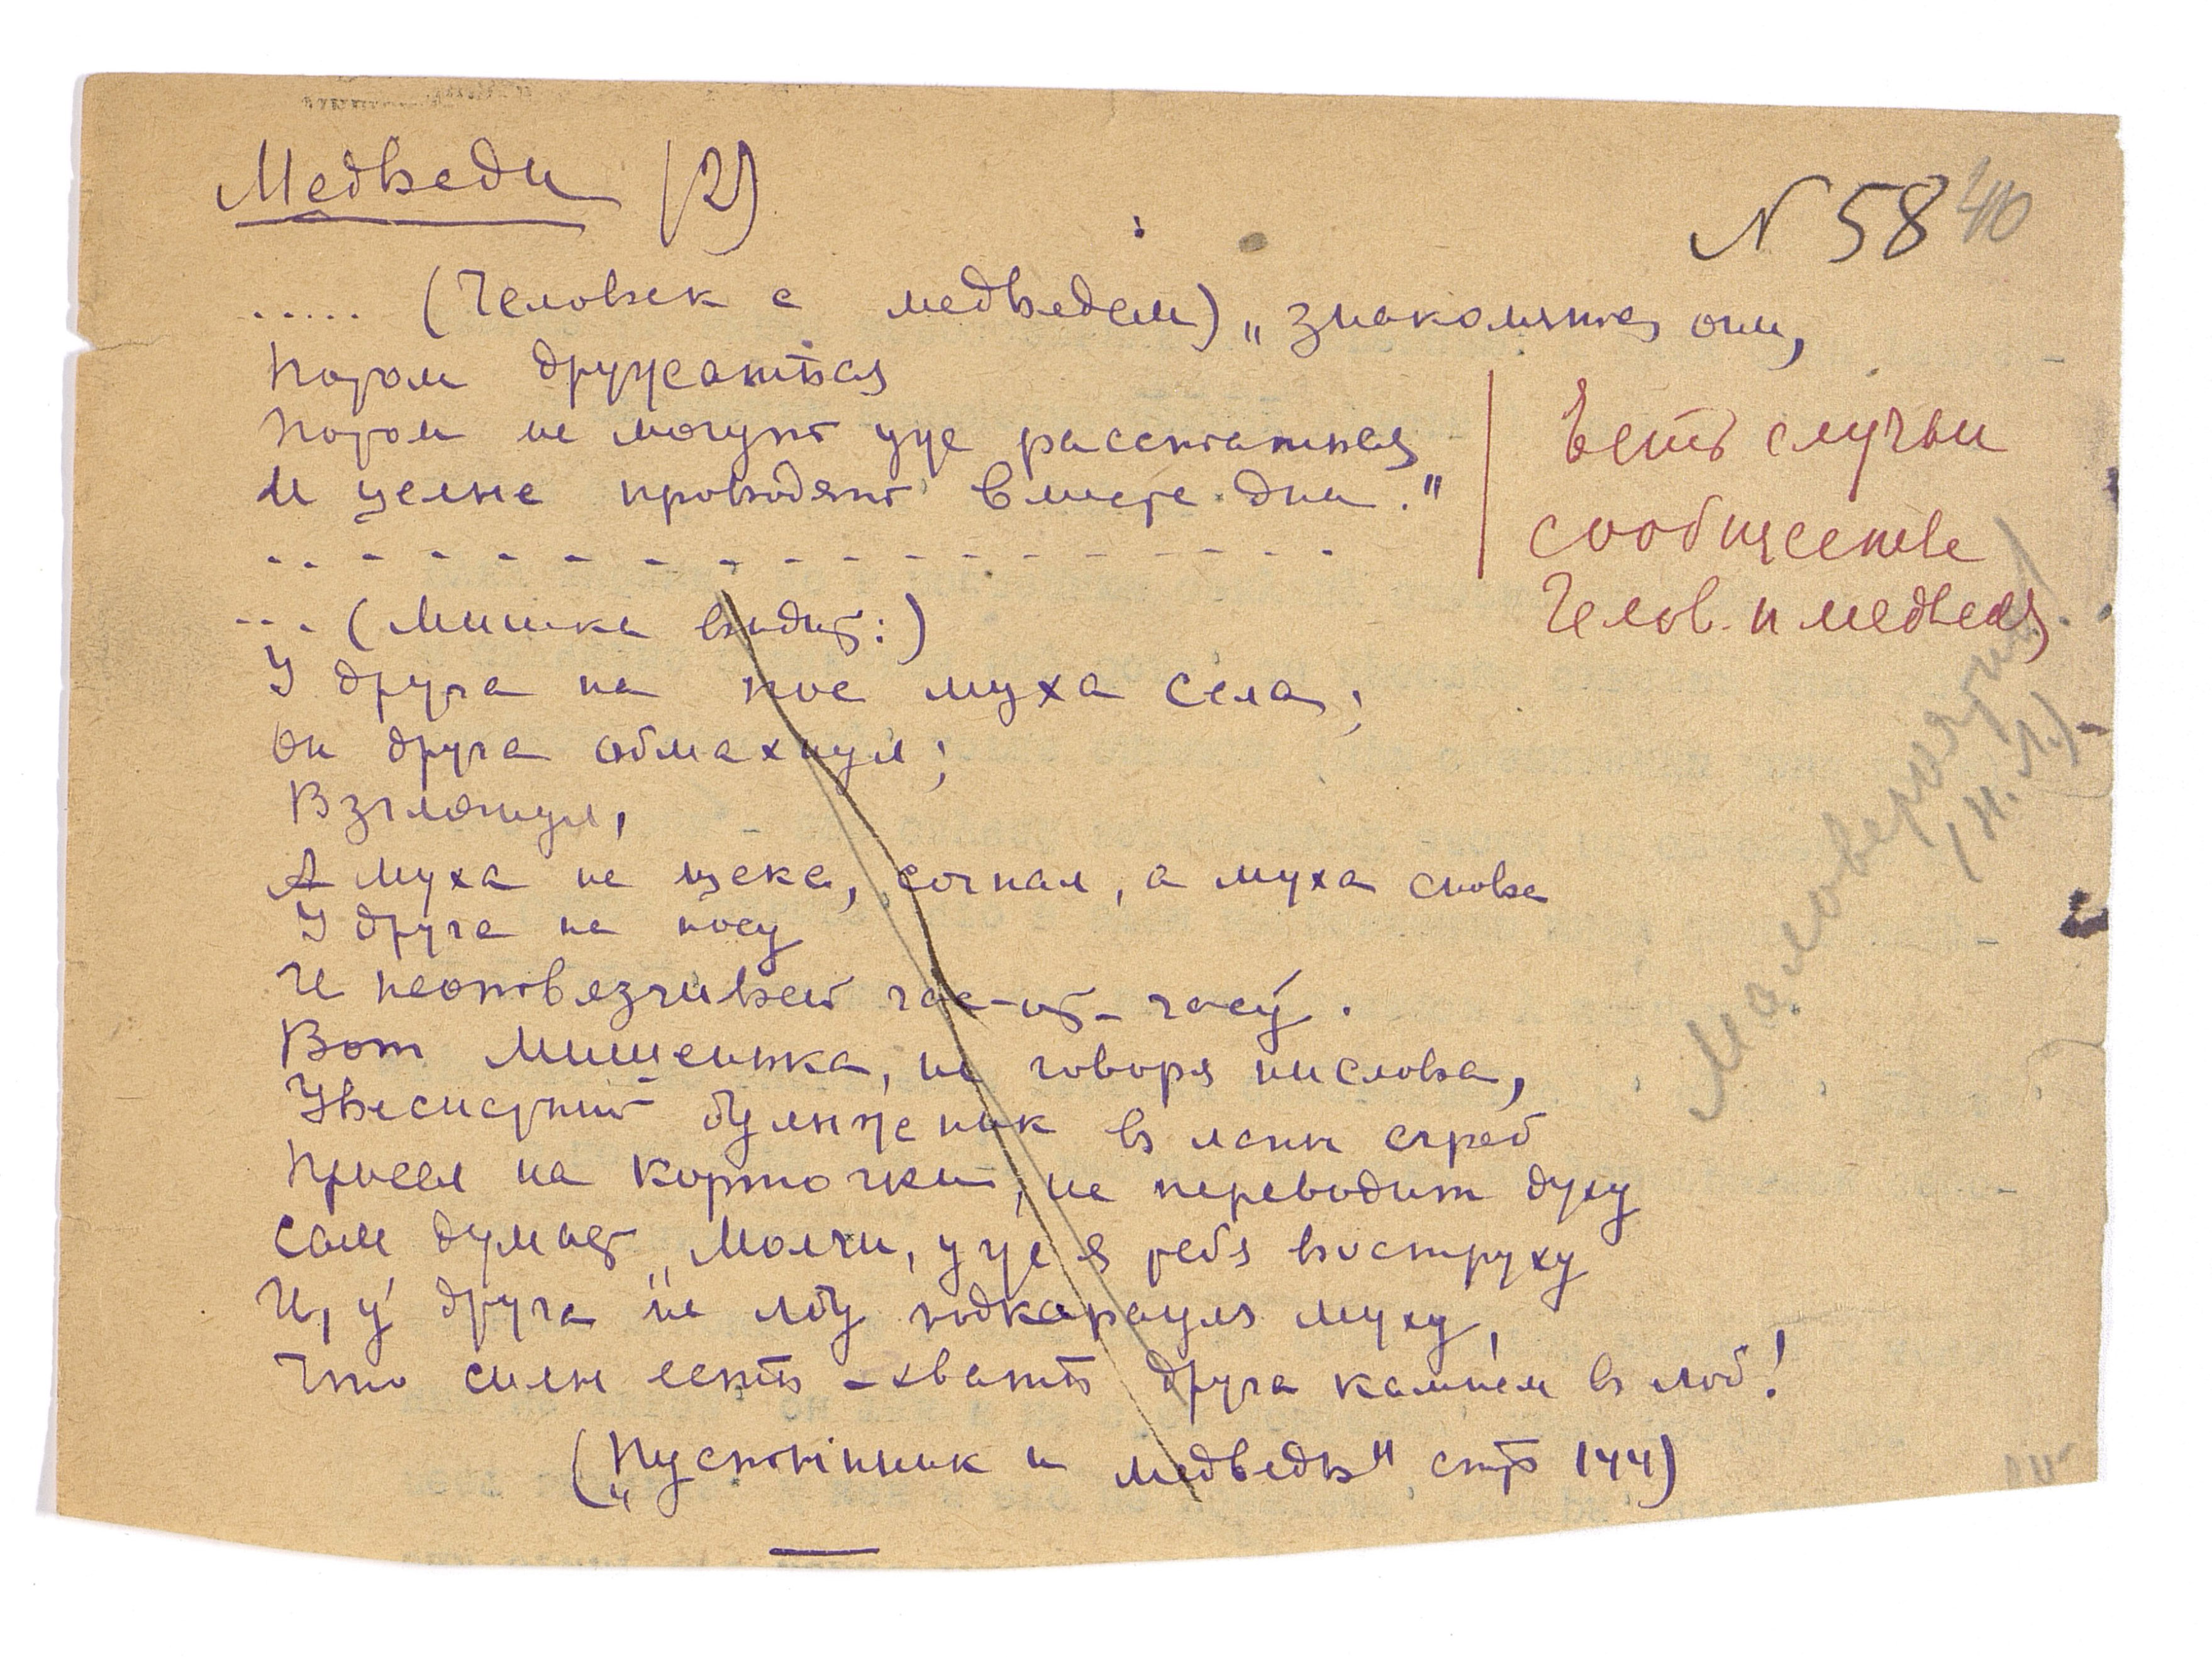 Медведи (2)
N 58 40
..... (Человек с медведем) „знакомятся они,
Потом дружатся
Потом не могут уже расстаться
И целые проводят вместе дни."
Есть случаи
сообществе
Челов. и медведя
... (Мишка видит:)
У друга на нос муха села;
Он друга обмахнул;
Взглянул,
А муха на щеке, согнал, а муха снова
У друга на носу
И неотвязчивей час-от-часу.
Вот Мишенька, не говоря ни слова,
Увесистый булыжник в лапы сгреб
Присел на корточки, не переводит духу
Сам думает „Молчи, уже я тебя воструху
И, у друга на лбу подкарауля муху,
Что силы есть - хвать друга камнем в лоб!
(„Пустынник и медведь" стр 144)
Маловероятно!
(Н. Л.)